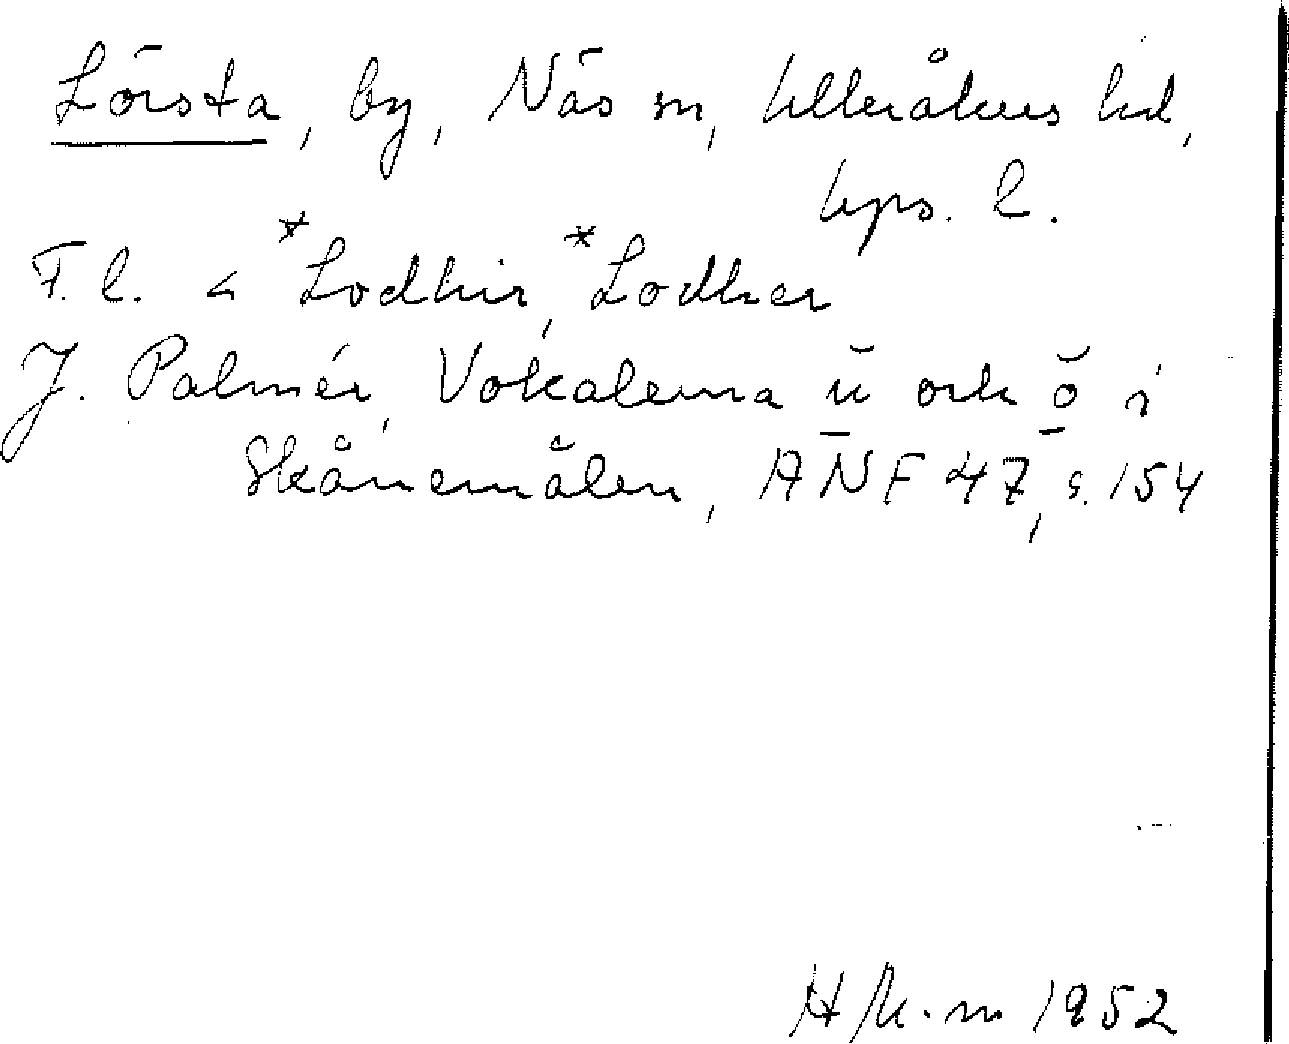 Lörsta, by, Näs sn, Ulleråkers hd,
Ups. l.
F. l. < *Lodhir, *Lodher
J. Palmér, Vokalerna ŭ och ŏ i
Skånemålen, ANF 47, s. 154
1952